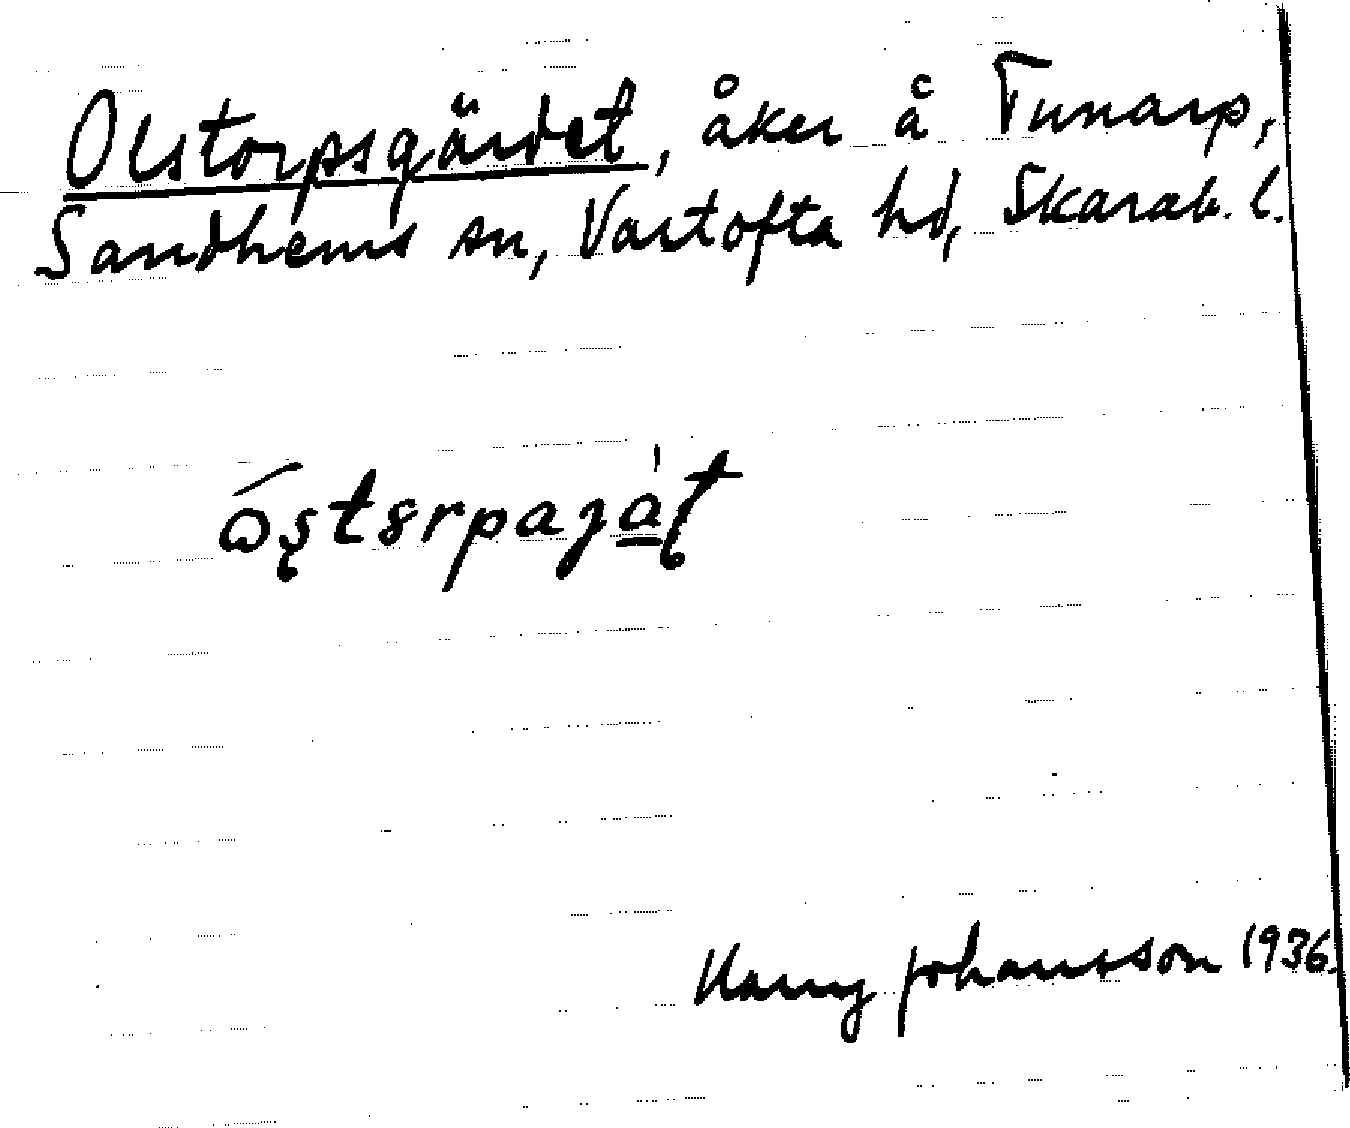 Olstorpsgärdet, åker å Tunarp,
Sandhems sn, Vartofta hd, Skarab. l.
Harry Johansson 1936.